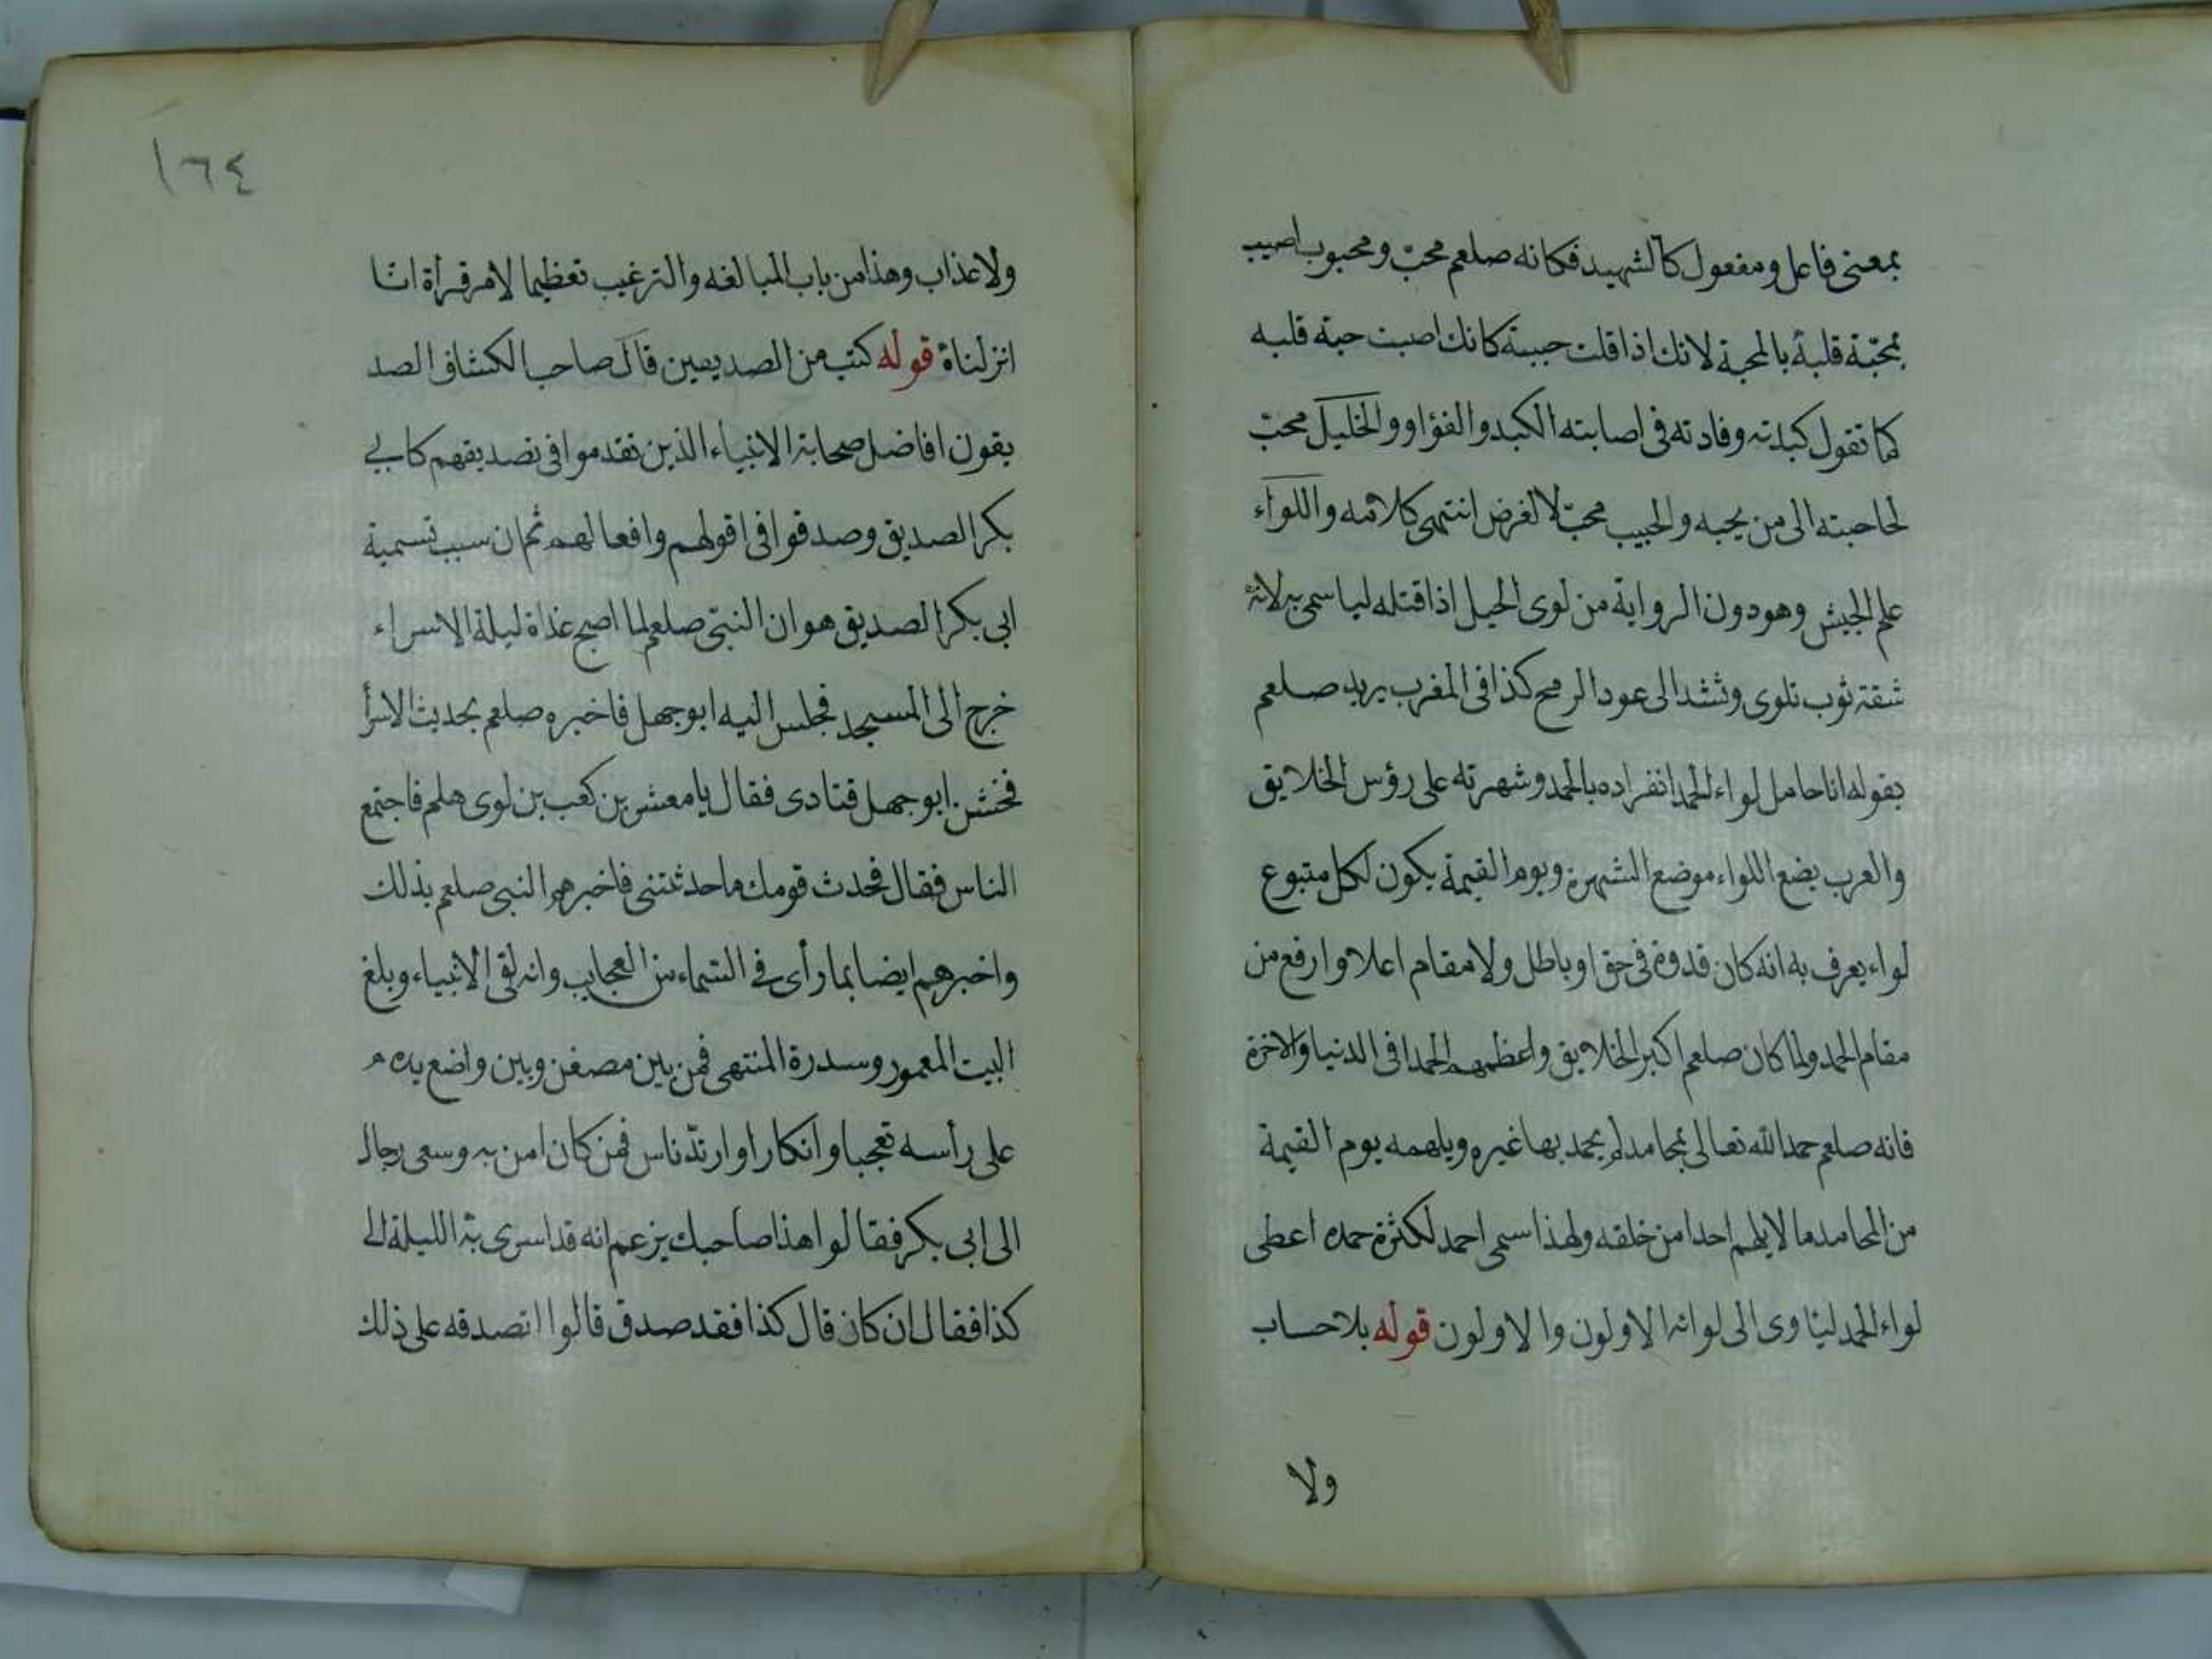 بمعنى فاعل ومفعول كالشهيد فكانه صلعم محبّ ومحبوب اصيب
بمحبّة قلبه بالمحبة لانك اذا قلت حببته كانك اصبت حبة قلبه
كما تقول كبدته وفادته فى اصابته الكبد والفؤاد والخليل محبّ
لحاجته الى من يحبه والحبيب محبّ لا لغرض انتهى كلامه واللواء
علم الجيش وهو دون الراية من لوى الحبل اذا قتله ليا سمى به لانه
شقة ثوب تلوى وتشد الى عود الرمح كذا فى المغرب يريد صلعم
بقوله انا حامل لواء الحمد انفراده بالحمد وشهرته على رؤس الخلايق
والعرب يضع اللواء موضع الشهرة ويوم القيمة يكون لكل متبوع
لواء يعرف به انه كان قدوة فى حق او باطل ولا مقام اعلا وارفع من
مقام الحمد ولما كان صلعم اكبر الخلايق واعظمهم الحمدا فى الدنيا والاخرة
فانه صلعم حمد الله تعالى بمحامد لم يحمد بها غيره ويلهمه يوم القيمة
من المحامد ما لا يلهم احدا من خلقه ولهذا سمى احمد لكثرة حمده اعطى
لواء الحمد ليتاوى الى لوائه الاولون والاولون قوله بلا حساب
ولا
١٦٤
ولا عذاب وهذا من باب المبالغه والترغيب تعظيما لامر قرأة انّا
انزلناه قوله كتب من الصديقين قال صاحب الكشاف الصد
يقون افاضل صحابة الانبياء الذين تقدموا فى تصديقهم كابى
بكر الصديق وصدقوا فى اقولهم وافعالهم ثم ان سبب تسمية
ابى بكر الصديق هو ان النبى صلعم لما اصبح غداة ليلة الاسراء
خرج الى المسجد فجلس اليه ابو جهل فاخبره صلعم بحديث الاسرأ
فخشن ابو جهل فنادى فقال يا معشر بن كعب بن لوى هلم فاجتمع
الناس فقال فحدث قومك ما حدثتنى فاخبرهم النبى صلعم بذلك
واخبرهم ايضا بما رأى فى السماء من العجايب وانه لقى الانبياء وبلغ
البيت المعمور وسدرة المنتهى فمن بين مصفن وبين واضع يده
على رأسه تعجبا وانكارا وارتدّ ناس فمن كان امن به وسعى رجال
الى ابى بكر فقالوا هذا صاحبك يزعم انه قد اسرى به الليلة الى
كذا فقال ان كان قال كذا فقد صدق قالوا اتصدقه على ذلك